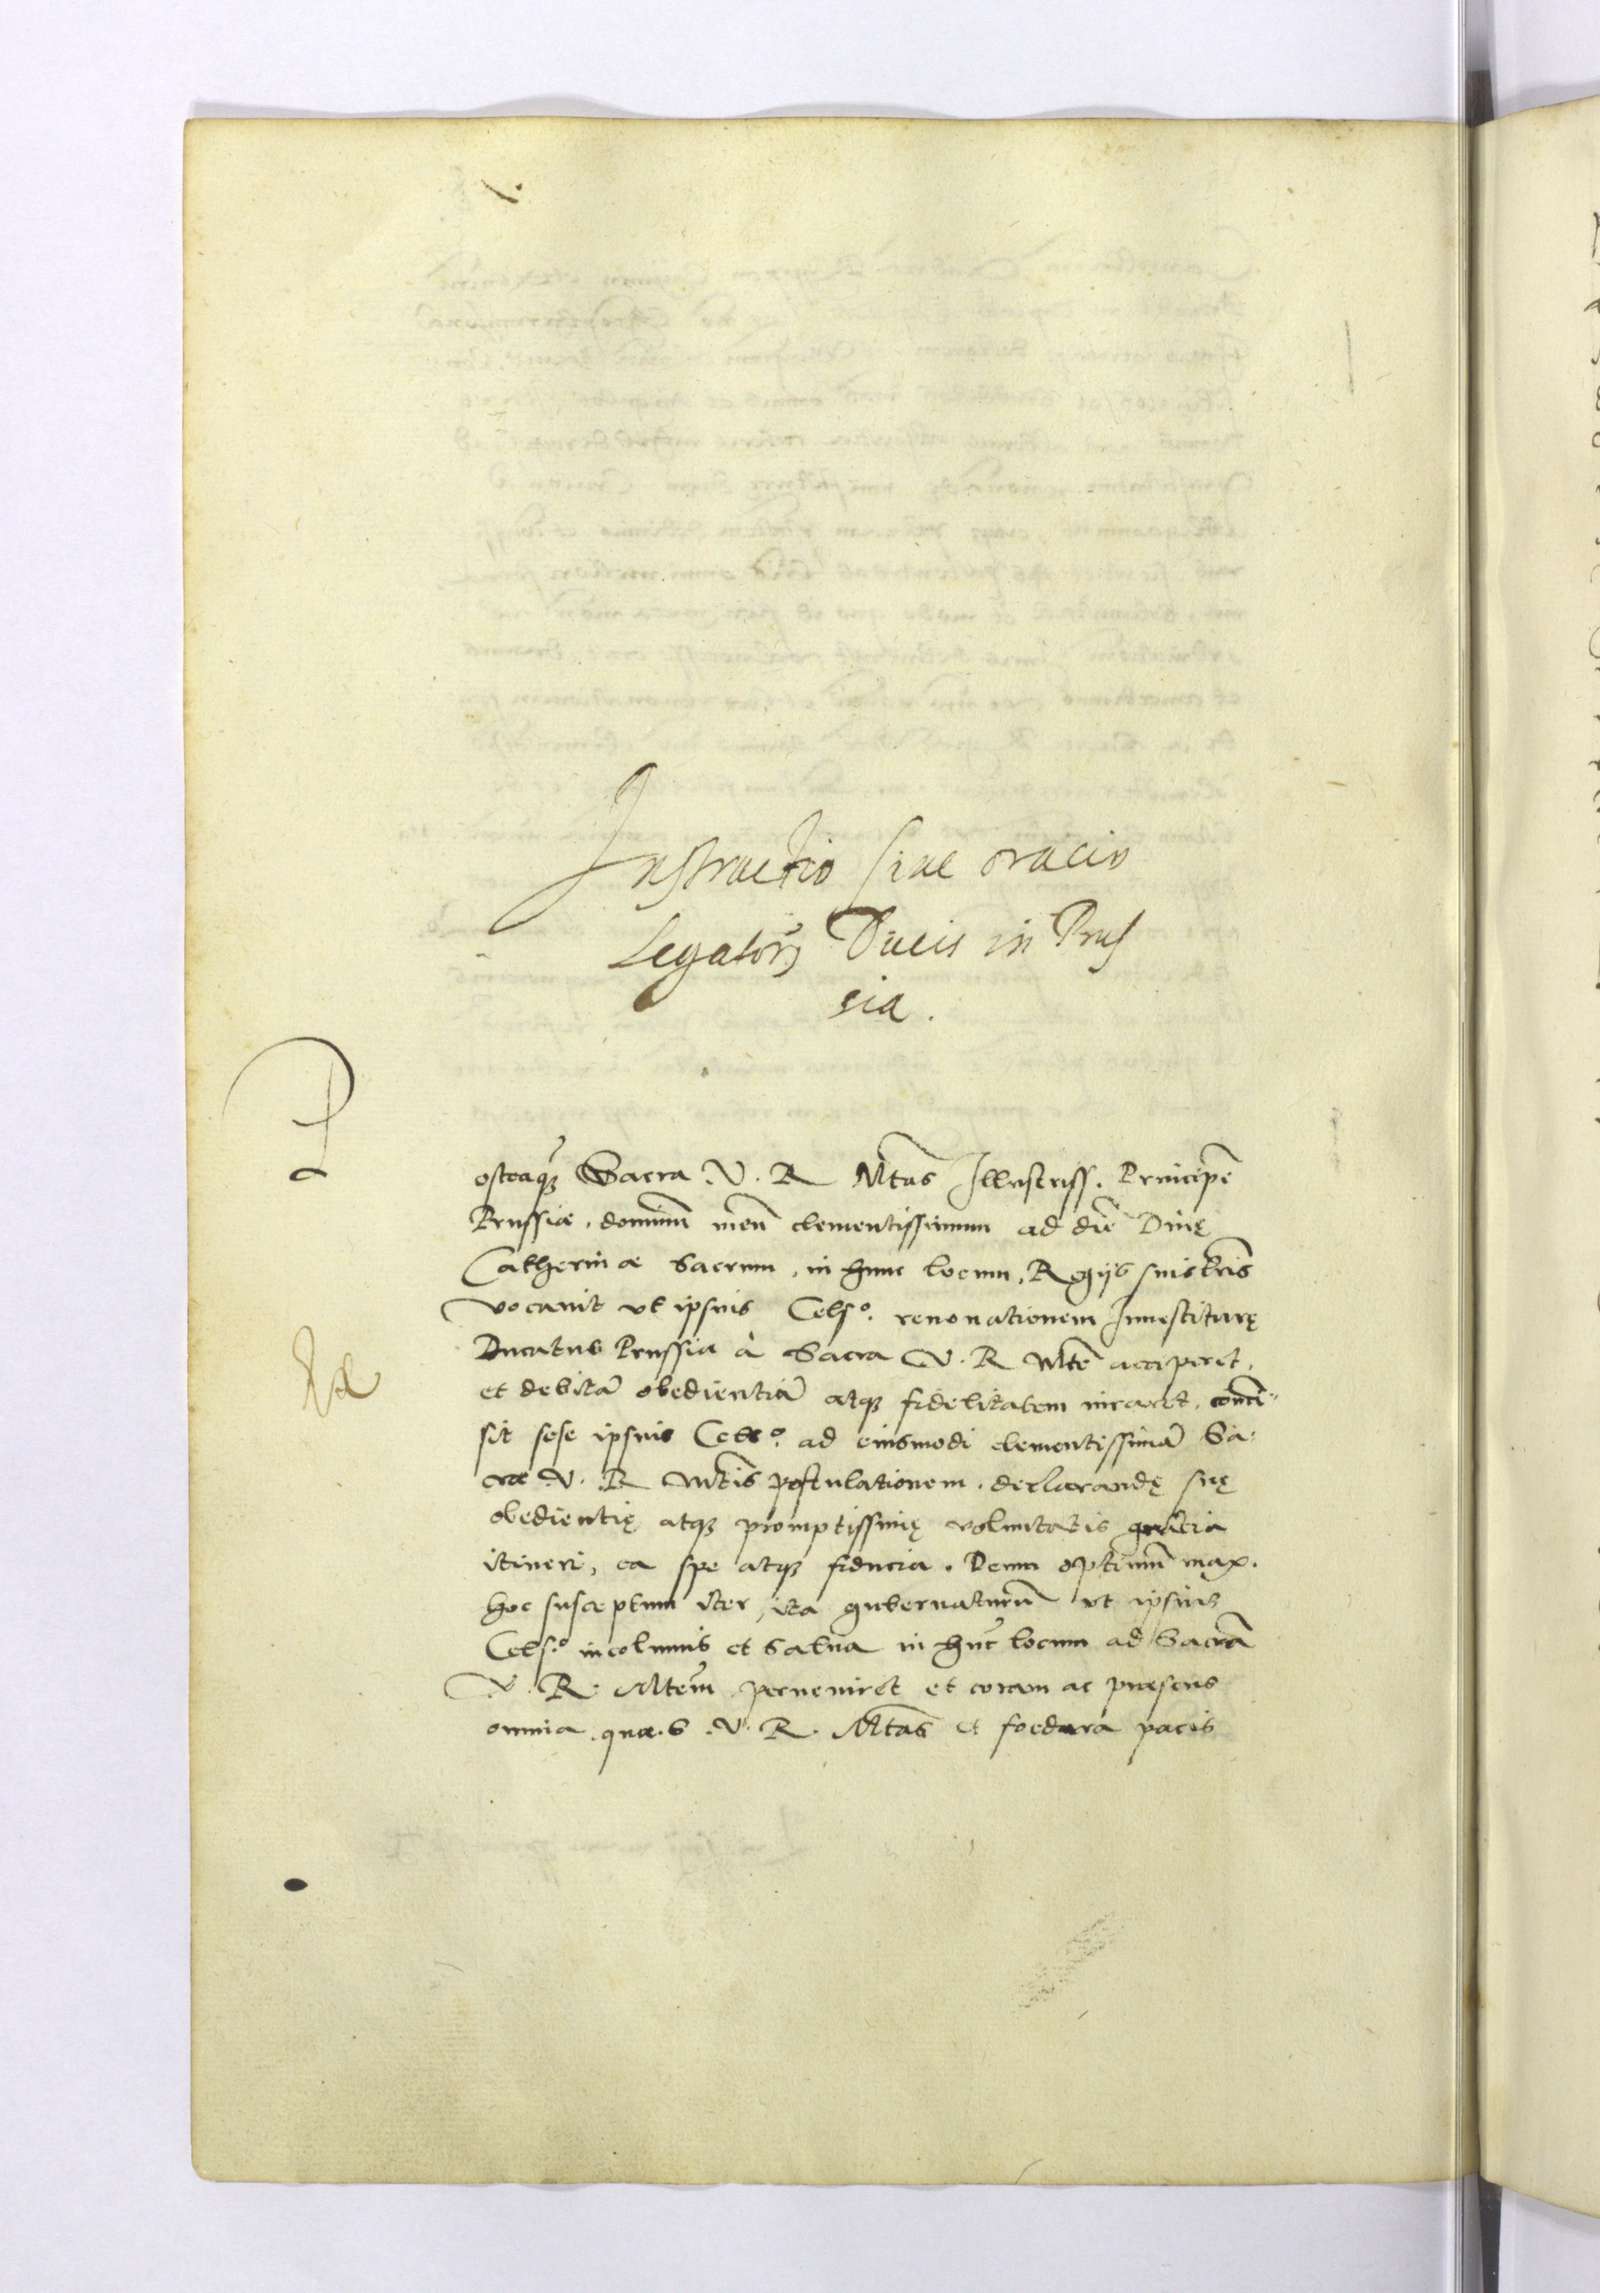 Instructio siue oracio
Legatorꝝ Ducis in Prus
sia.
Posteaqꝫ Sacra V. R Mtas Illustriss. Principē
Prussiae, dominū meū clementissimum ad diē Diuę
Catherinae Sacrum, in hunc locum, Regijs suis lr̄is
vocauit vt ipsius Celsº. renouationem Inuestiturę
Ducatus Prussia à Sacra V. R Mte acciperet,
et debitā obedientiā atqꝫ fidelitatem iuraret, com̄i
sit sese ipsius Celsº. ad eiusmodi clementissimā Sa-
crae V. R Mtis postulationem, declarandę suę
obedientię atqꝫ promptissimę voluntatis gratia
itineri, ea spe atqꝫ fiducia. Deum optimū max.
hoc susceptum iter, ita gubernaturū vt ipsius
Celsº. incolumis et salua in hūc locum ad Sacrā
V. R. Mtem perueniret et coram ac praesens
omnia, quae S. V. R. Mtas et foedera pacis